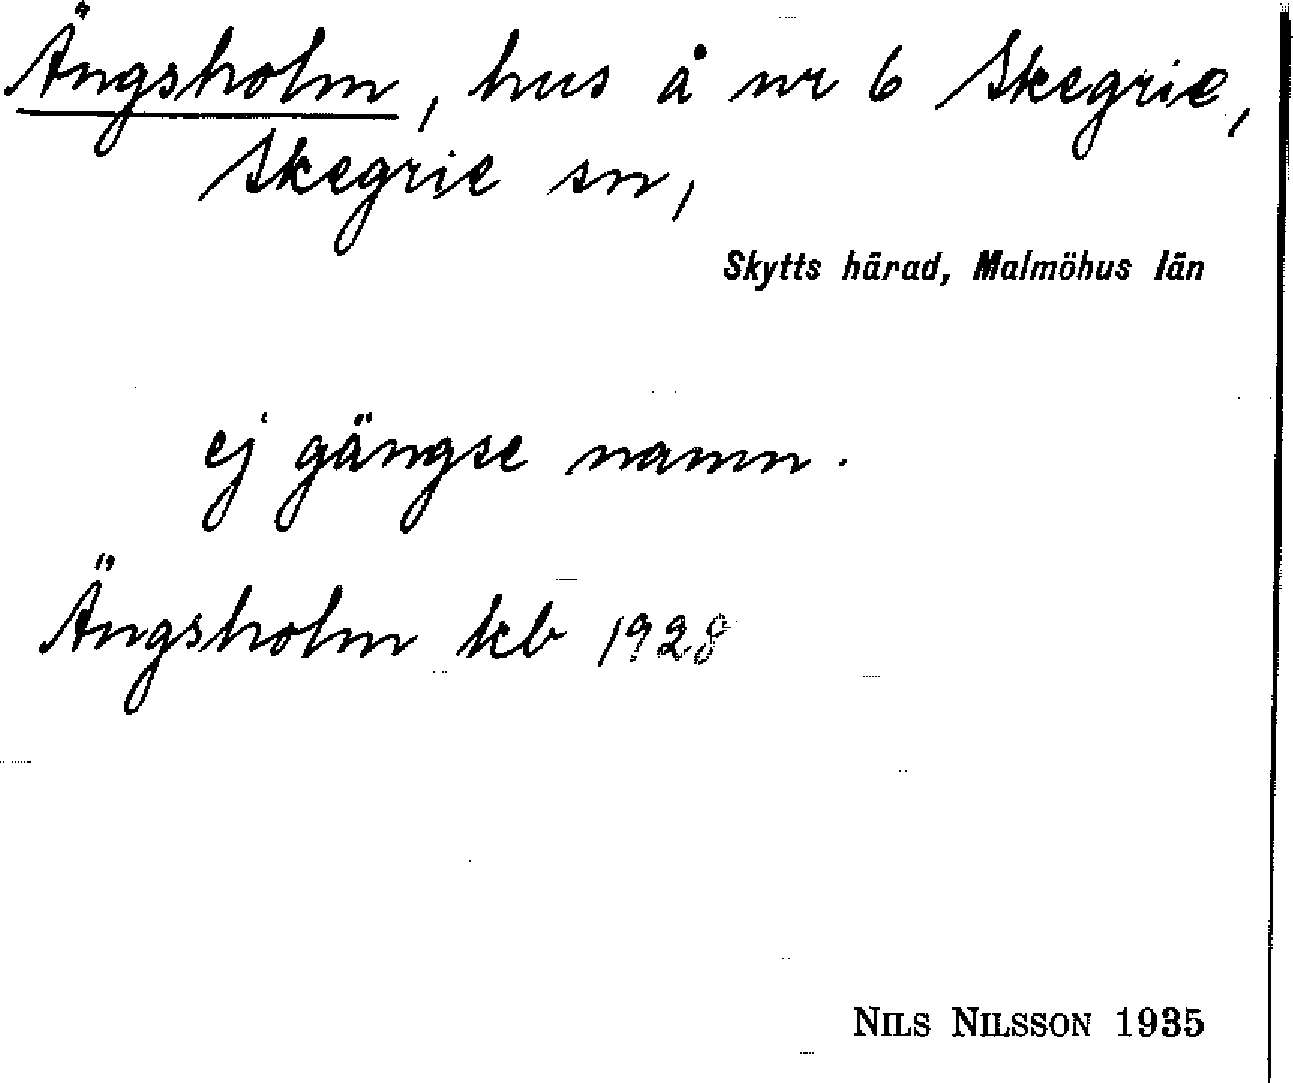 Ängsholm, hus å nr 6 Skegrie,
Skegrie sn,
Skytts härad, Malmöhus län
ej gängse namn.
Ängsholm kb 1928
NILS NILSSON 1935